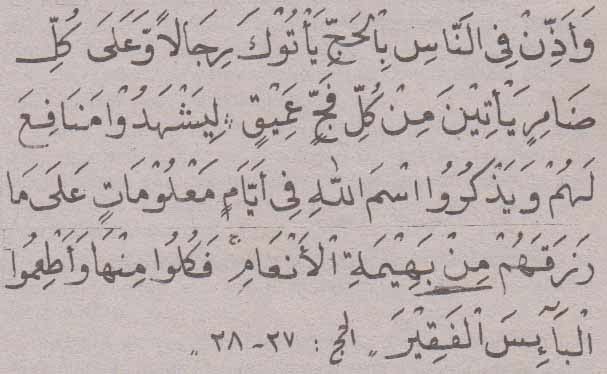 وَأَذِّنْ فِى النَّاسِ بِالْحَجِّ يَأْتُوْكَ رِجَالاً وَّعَلَى كُلِّ
ضَامِرٍ يَأْتِيْنَ مِنْ كُلِّ فَجٍّ عَمِيْقٍ ؛ لِيَشْهَدُوْا مَنَافِعَ
لَهُمْ وَيَذْكُرُوا اسْمَ اللّٰهِ فِى أَيَّامٍ مَعْلُوْمَاتٍ عَلَى مَا
رَزَقَهُمْ مِنْ بَهِيْمَةِ الْأَنْعَامِ ۚ فَكُلُوْا مِنْهَا وَأَطْعِمُوا
الْبَآئِسَ الْفَقِيْرَ „ الحج : ٢٧ - ٢٨ „